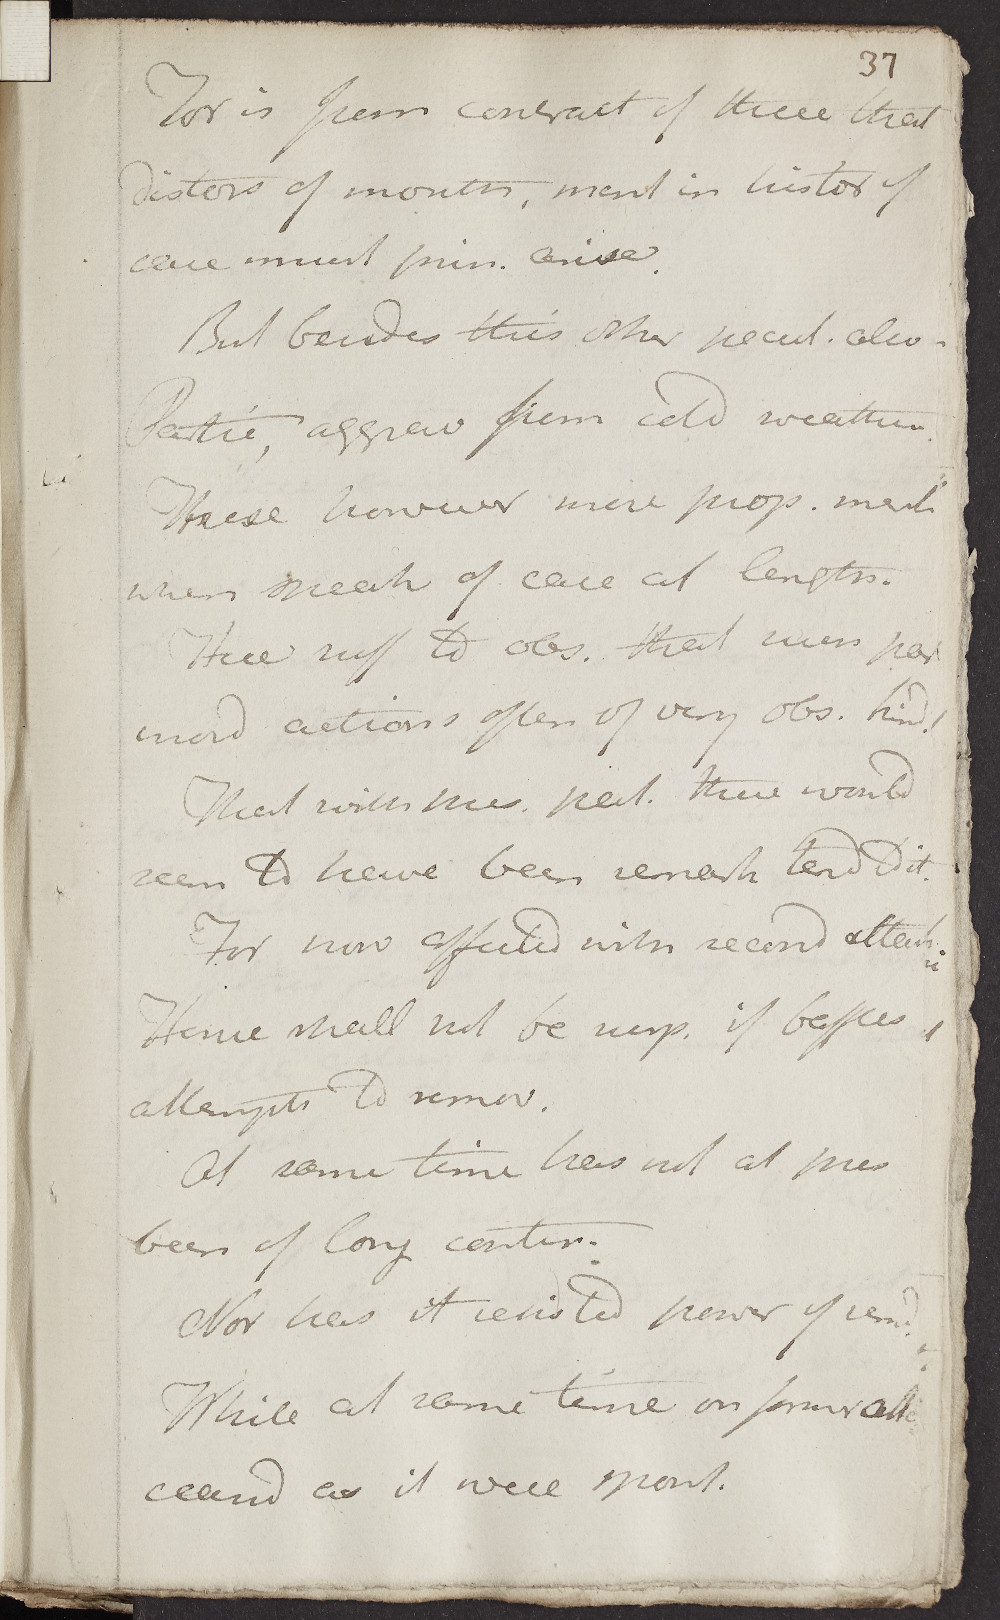 37
For is from contract of these that
distors of mouth, ment in histor of
case must prin. arise.
But besides this other pecul. also
Partic, aggrav from cold weather
These however more prop. ment
when speak of case at length.
Here suff to obs. that mus par
morb actions often of very obs. kind.
That with pres. pat. there would
seem to have been remark tend to it.
For now affected with second attack
Hence shall not be surp. if baffles
attempts to remov.
At same time has not at pres
been of long contin.
Nor has it resisted power of remed
While at same time on former atta
ceased as it were spont.